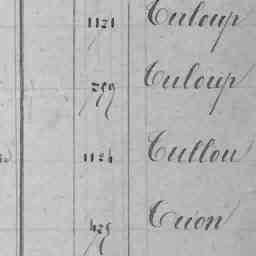 1121 Culoup
299 Culoup
1124 Cullou
425 Crion